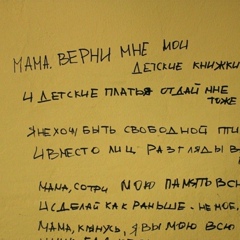 МАМА, ВЕРНИ МНЕ МОИ
ДЕТСКИЕ КНИЖКИ
И ДЕТСКИЕ ПЛАТЬЯ ОТДАЙ МНЕ
ТОЖЕ
Я НЕ ХОЧУ БЫТЬ СВОБОДНОЙ ПТИ
И ВМЕСТО ЛИЦ РАЗГЛЯДЫВ
МАМА, СОТРИ МОЮ ПАМЯТЬ ВСЮ
И СДЕЛАЙ КАК РАНЬШЕ
МАМА, КЛЯНУСЬ, Я ВЫМОЮ ВСЮ